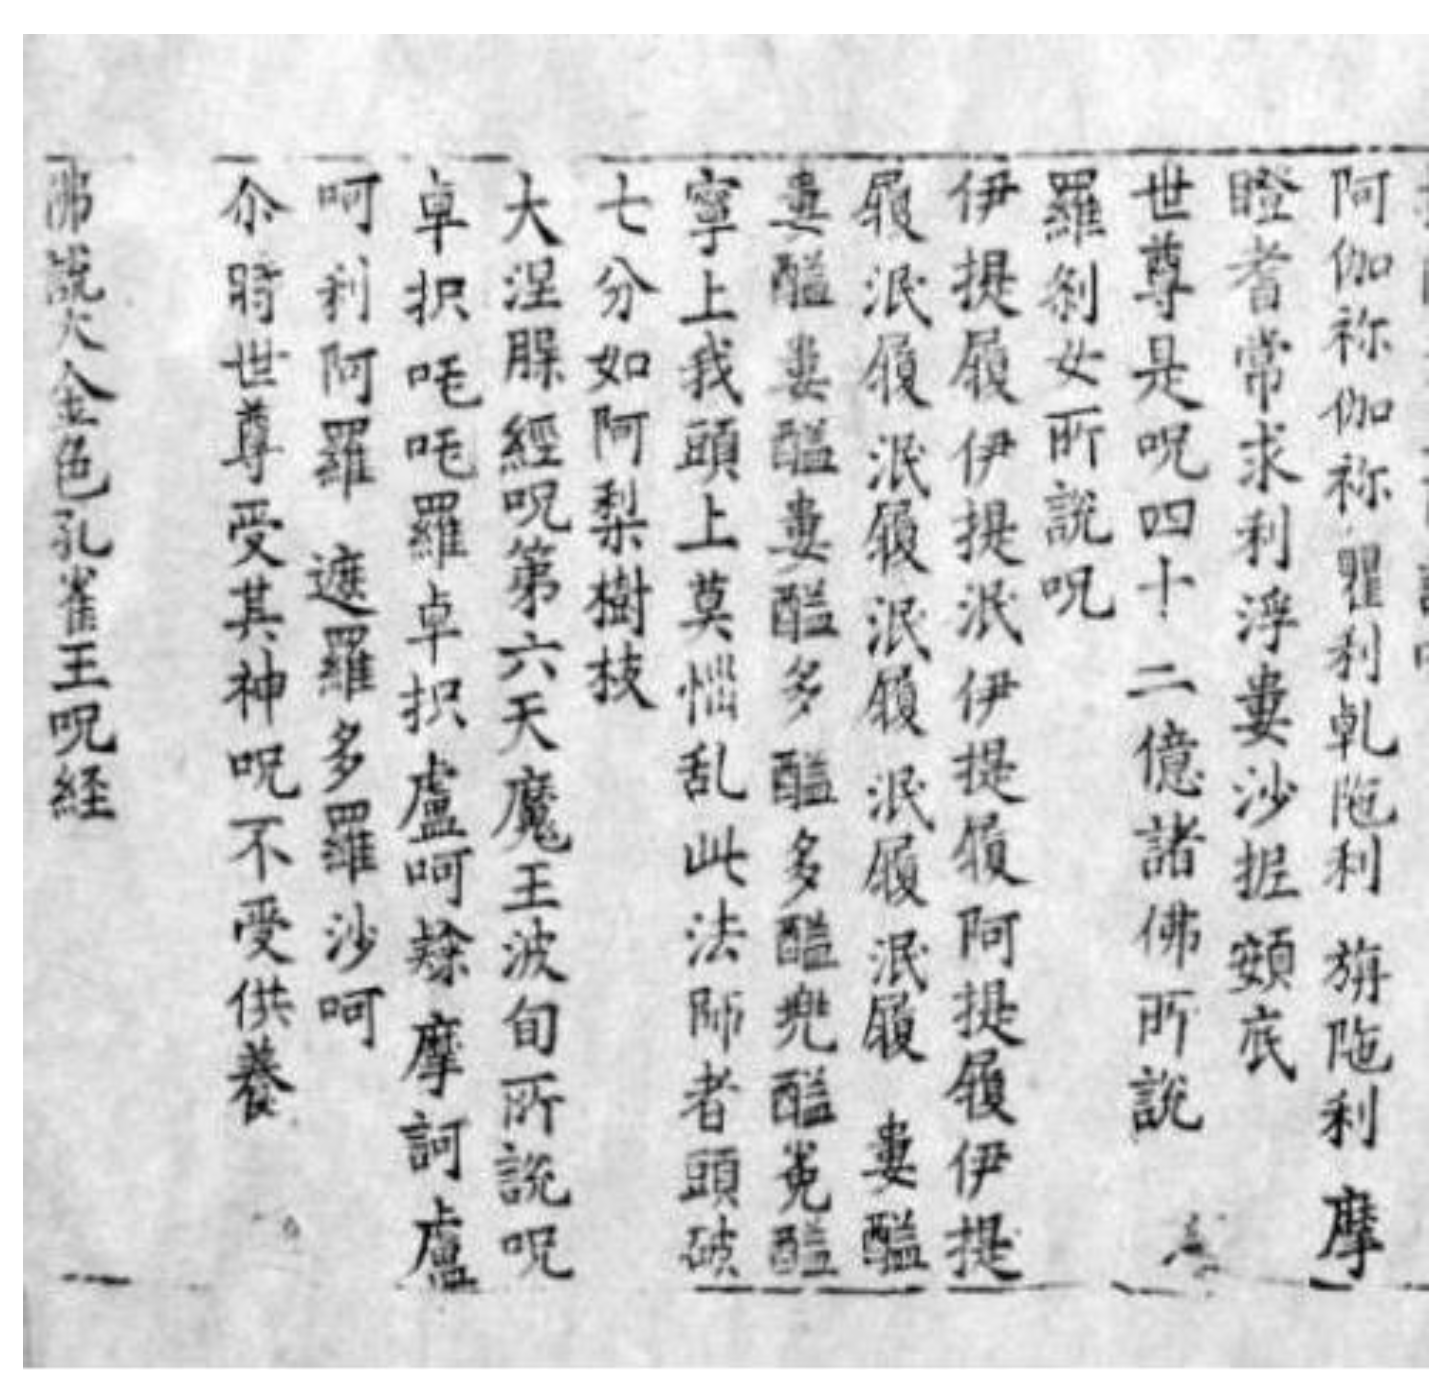 阿伽祢伽祢瞿利乹陁利旃陁利摩
瞪耆常求利浮婁沙抳頞底
世尊是呪四十二億諸佛所說
羅刹女所說呪
伊提履伊提泯伊提履阿提履伊提
履泯履泯履泯履泯履泯履婁醯
婁醯婁醯婁醯多醯多醯兠醯兠醯
寧上我頭上莫惱乱此法師者頭破
七分如阿梨樹枝
大涅脵經呪第六天魔王波旬所說呪
卓抧吒吒羅卓抧盧呵隸摩訶盧
呵利阿羅遮羅羅多羅沙呵
尒時世尊受其神呪不受供養
佛說大金色孔雀王呪経